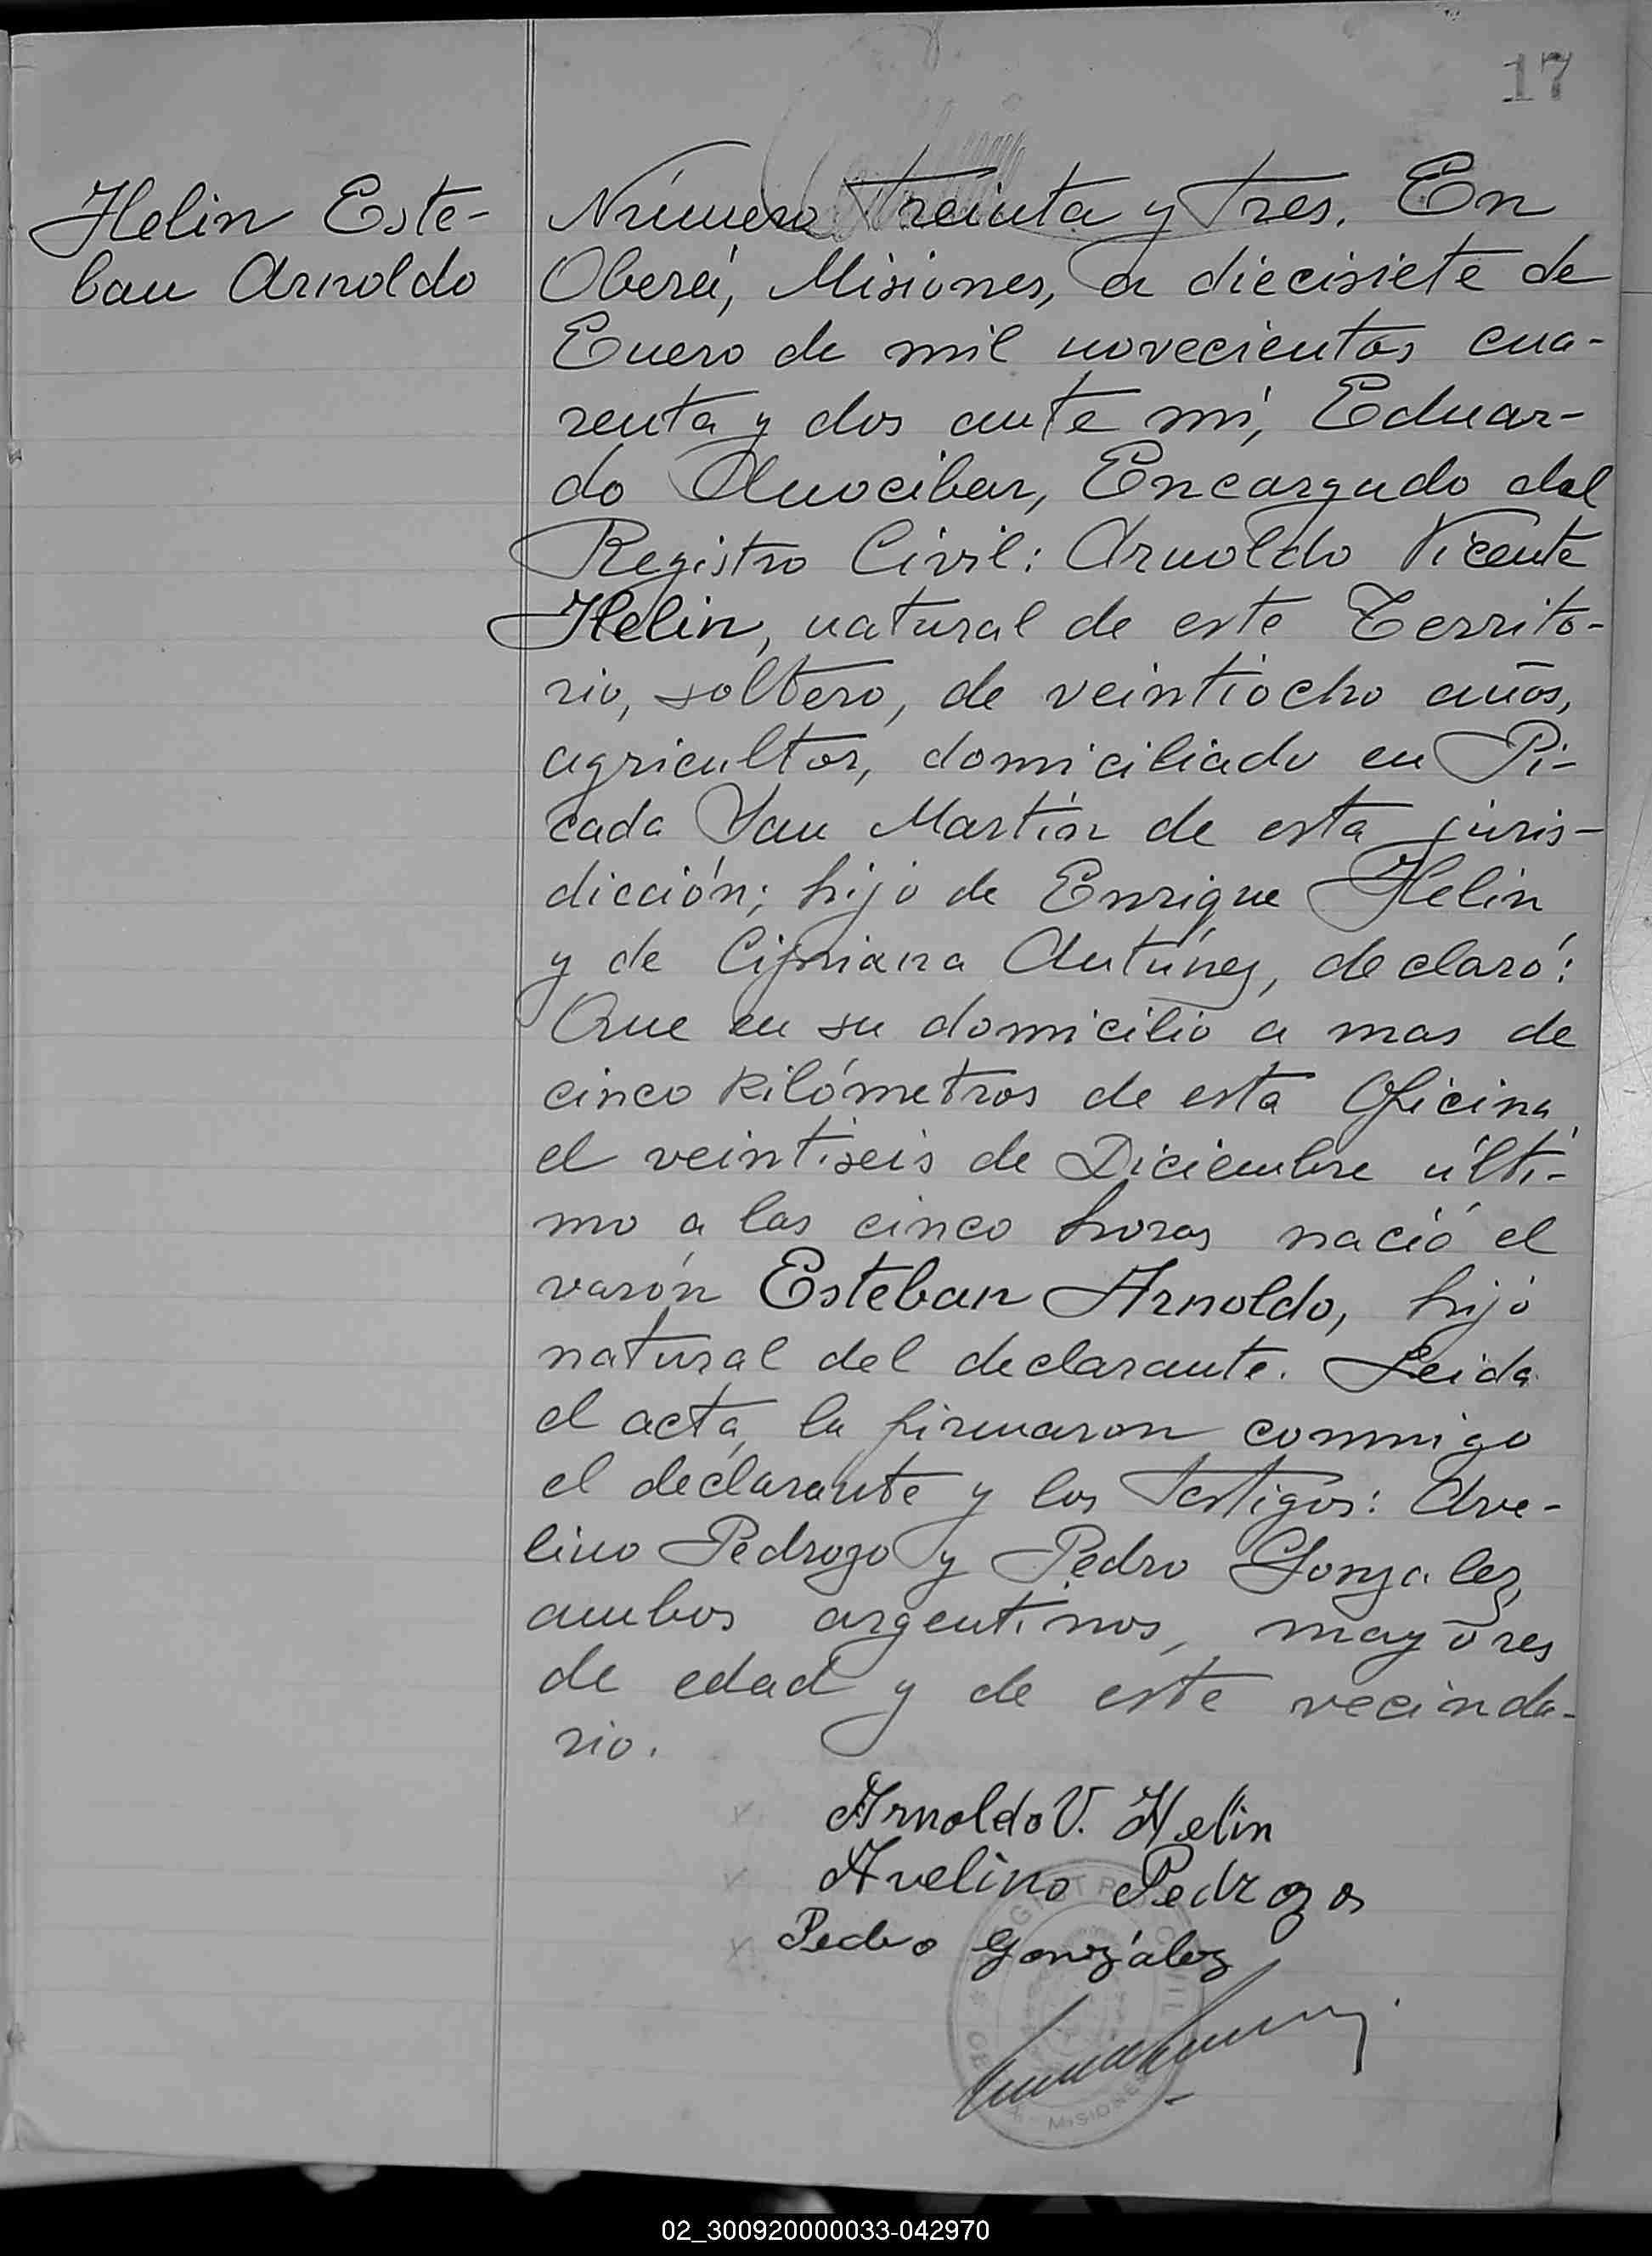 17
Helin Este-
ban Arnoldo
Número Treinta y Tres. En
Oberá, Misiones, a diecisiete de
Enero de mil novecientos cua-
renta y dos ante mí, Eduar-
do Anocibar, Encargado del
Registro Civil: Arnoldo Vicente
Helin, natural de este Territo-
rio, soltero, de veintiocho años,
agricultor, domiciliado en Pi-
cada San Martín de esta juris-
dicción; hijo de Enrique Helin
y de Cipriana Antúnez, declaró:
Que en su domicilio a mas de
cinco kilómetros de esta Oficina,
el veintiseis de Diciembre últi-
mo a las cinco horas nació el
varón Esteban Arnoldo, hijo
natural del declarante. Leida
el acta, la firmaron conmigo
el declarante y los testigos: Ave-
lino Pedrozo y Pedro Gonzalez,
ambos argentinos, mayores
de edad y de este vecinda-
rio.
Arnoldo V. Helin
Avelino Pedrozo
Pedro Gonzálες
REGISTRO CIVIL
OBERA MISIONES
02_300920000033-042970